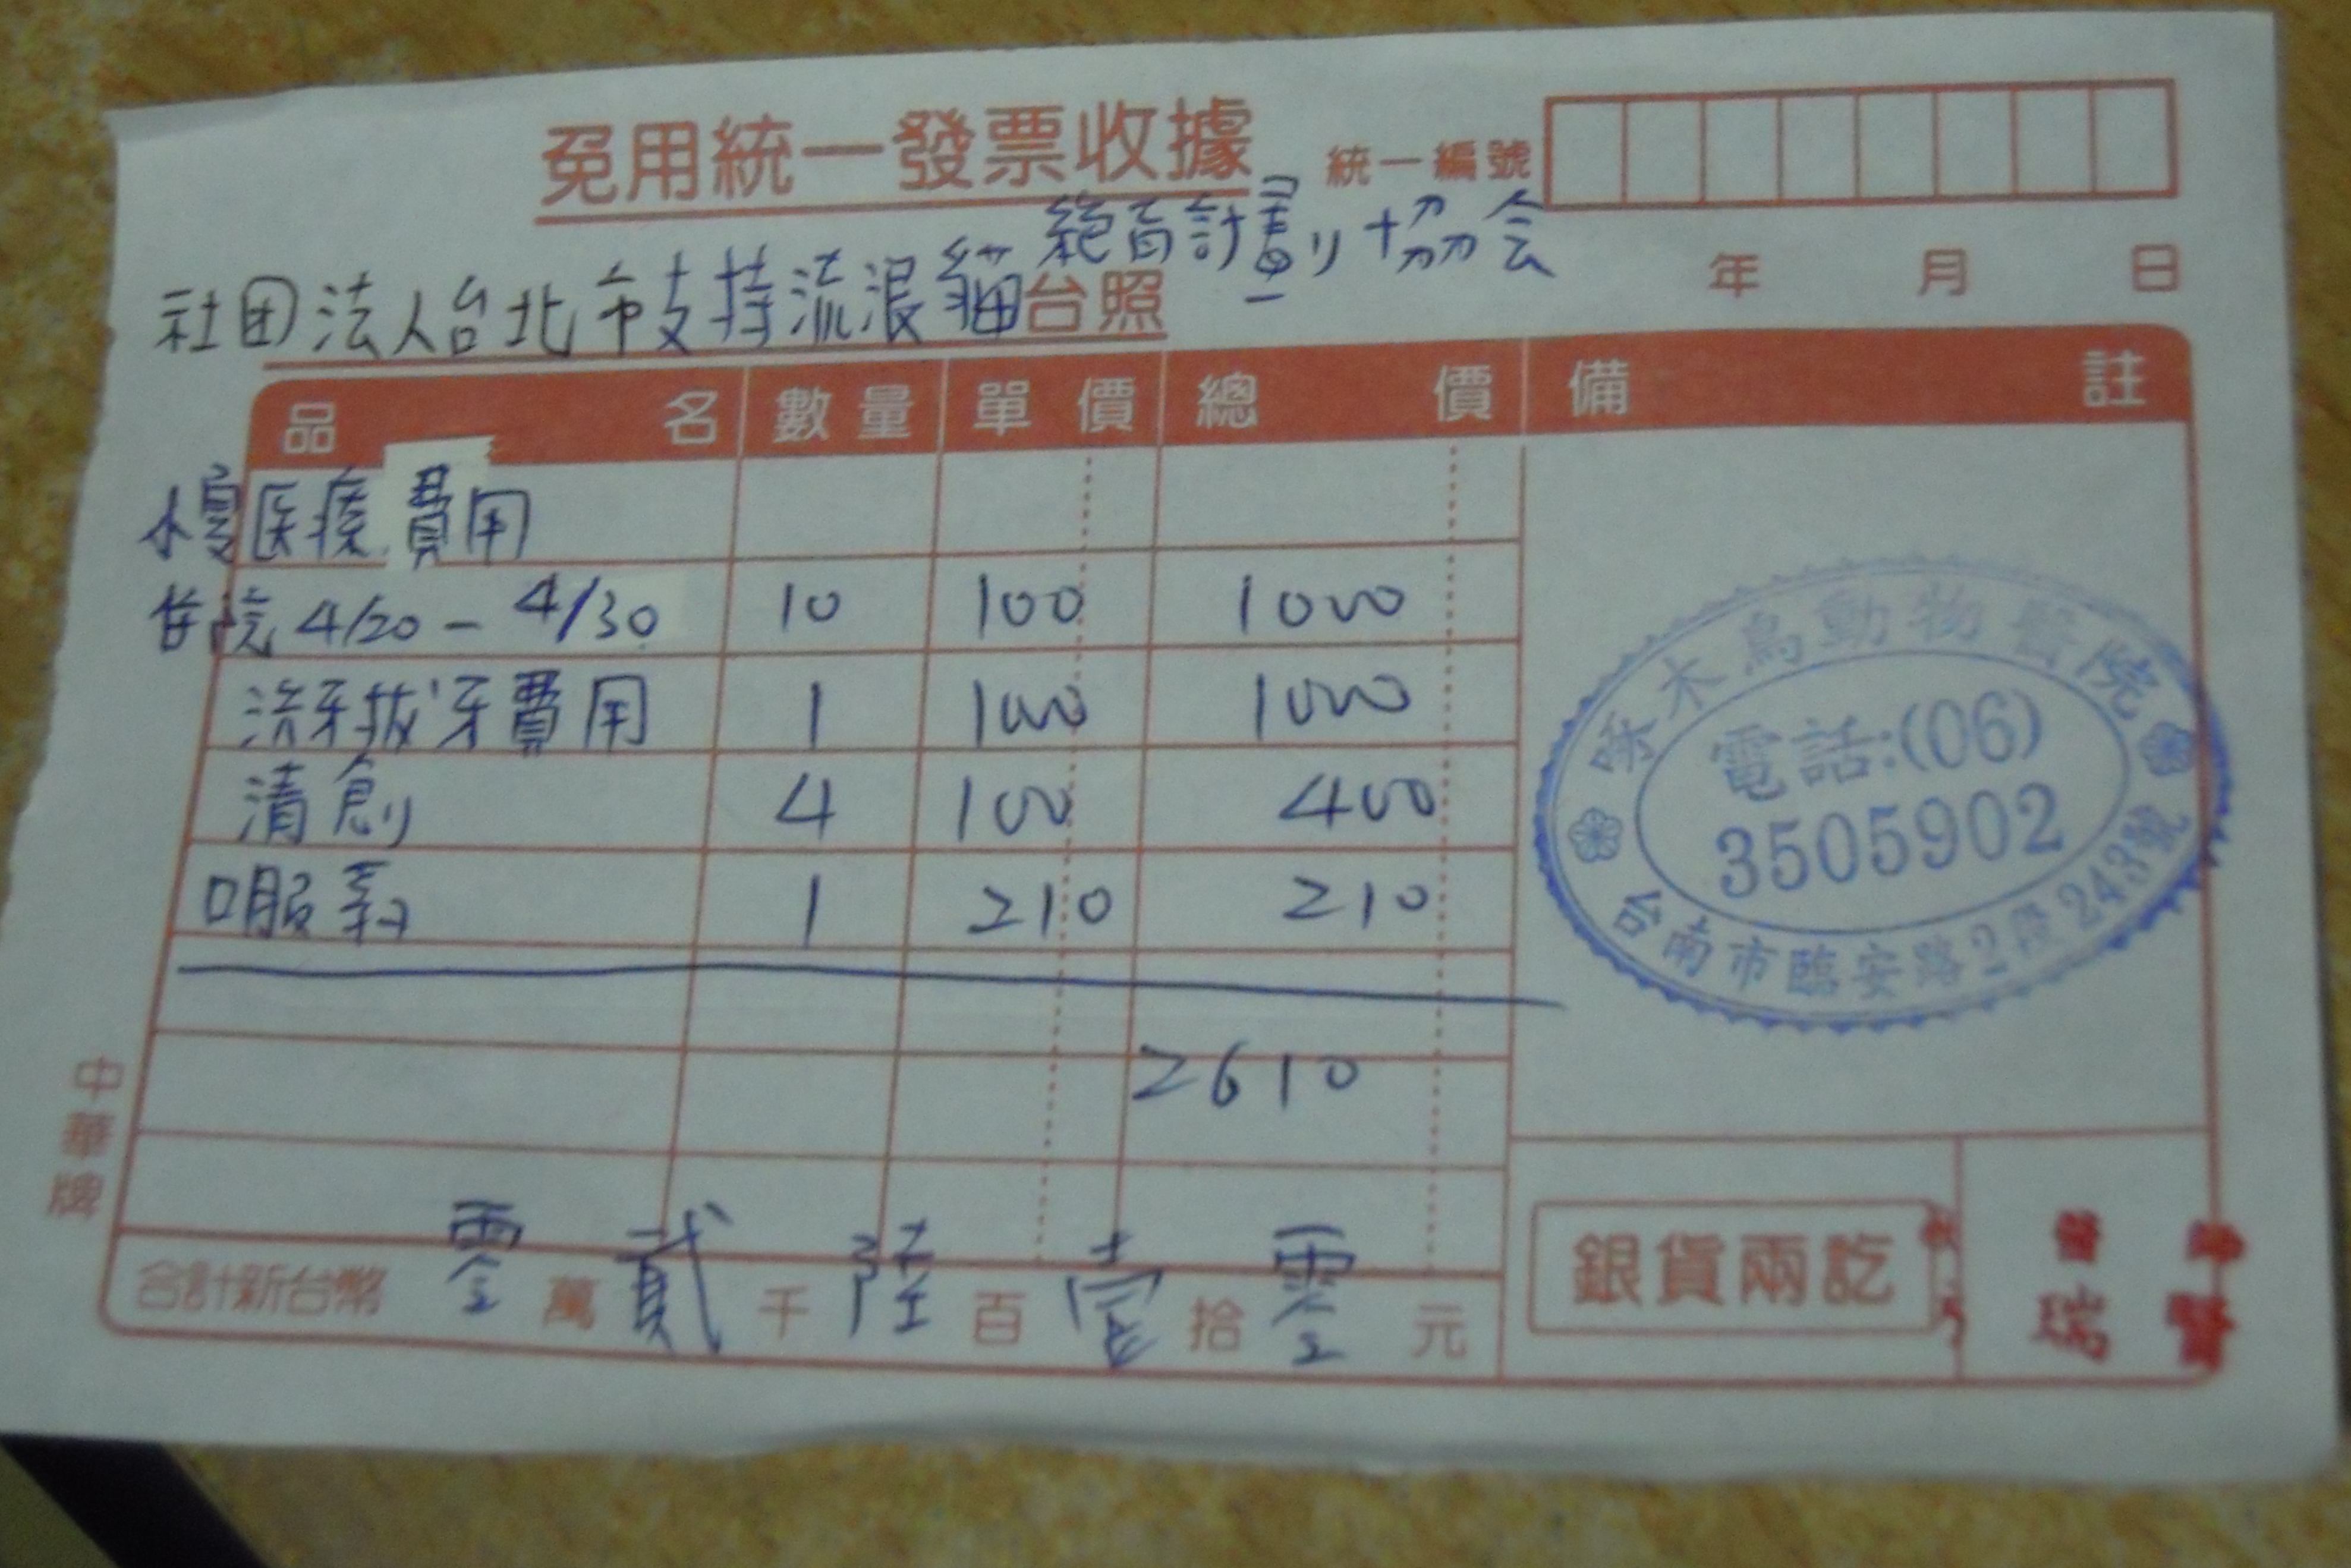 免用統一發票收據
統一編號
絕育計劃協会
年 月 日
社团法人台北市支持流浪貓台照
品名 數量 單價 總價 備註
医療費用
住院 4/20 - 4/30 10 100 1000
洗牙拔牙費用 1 1000 1000
清創 4 100 400
口服葯 1 210 210
2610
啄木鳥動物醫院
電話:(06)
3505902
台南市臨安路2段243號
中華牌
合計新台幣 零萬貳千陸百壹拾零元
銀貨兩訖
瑞